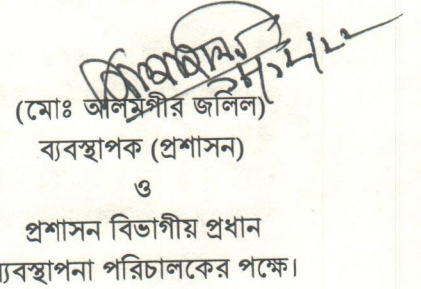 (মোঃ আলমগীর জলিল)
ব্যবস্থাপক (প্রশাসন)
ও
প্রশাসন বিভাগীয় প্রধান
ব্যবস্থাপনা পরিচালকের পক্ষে।